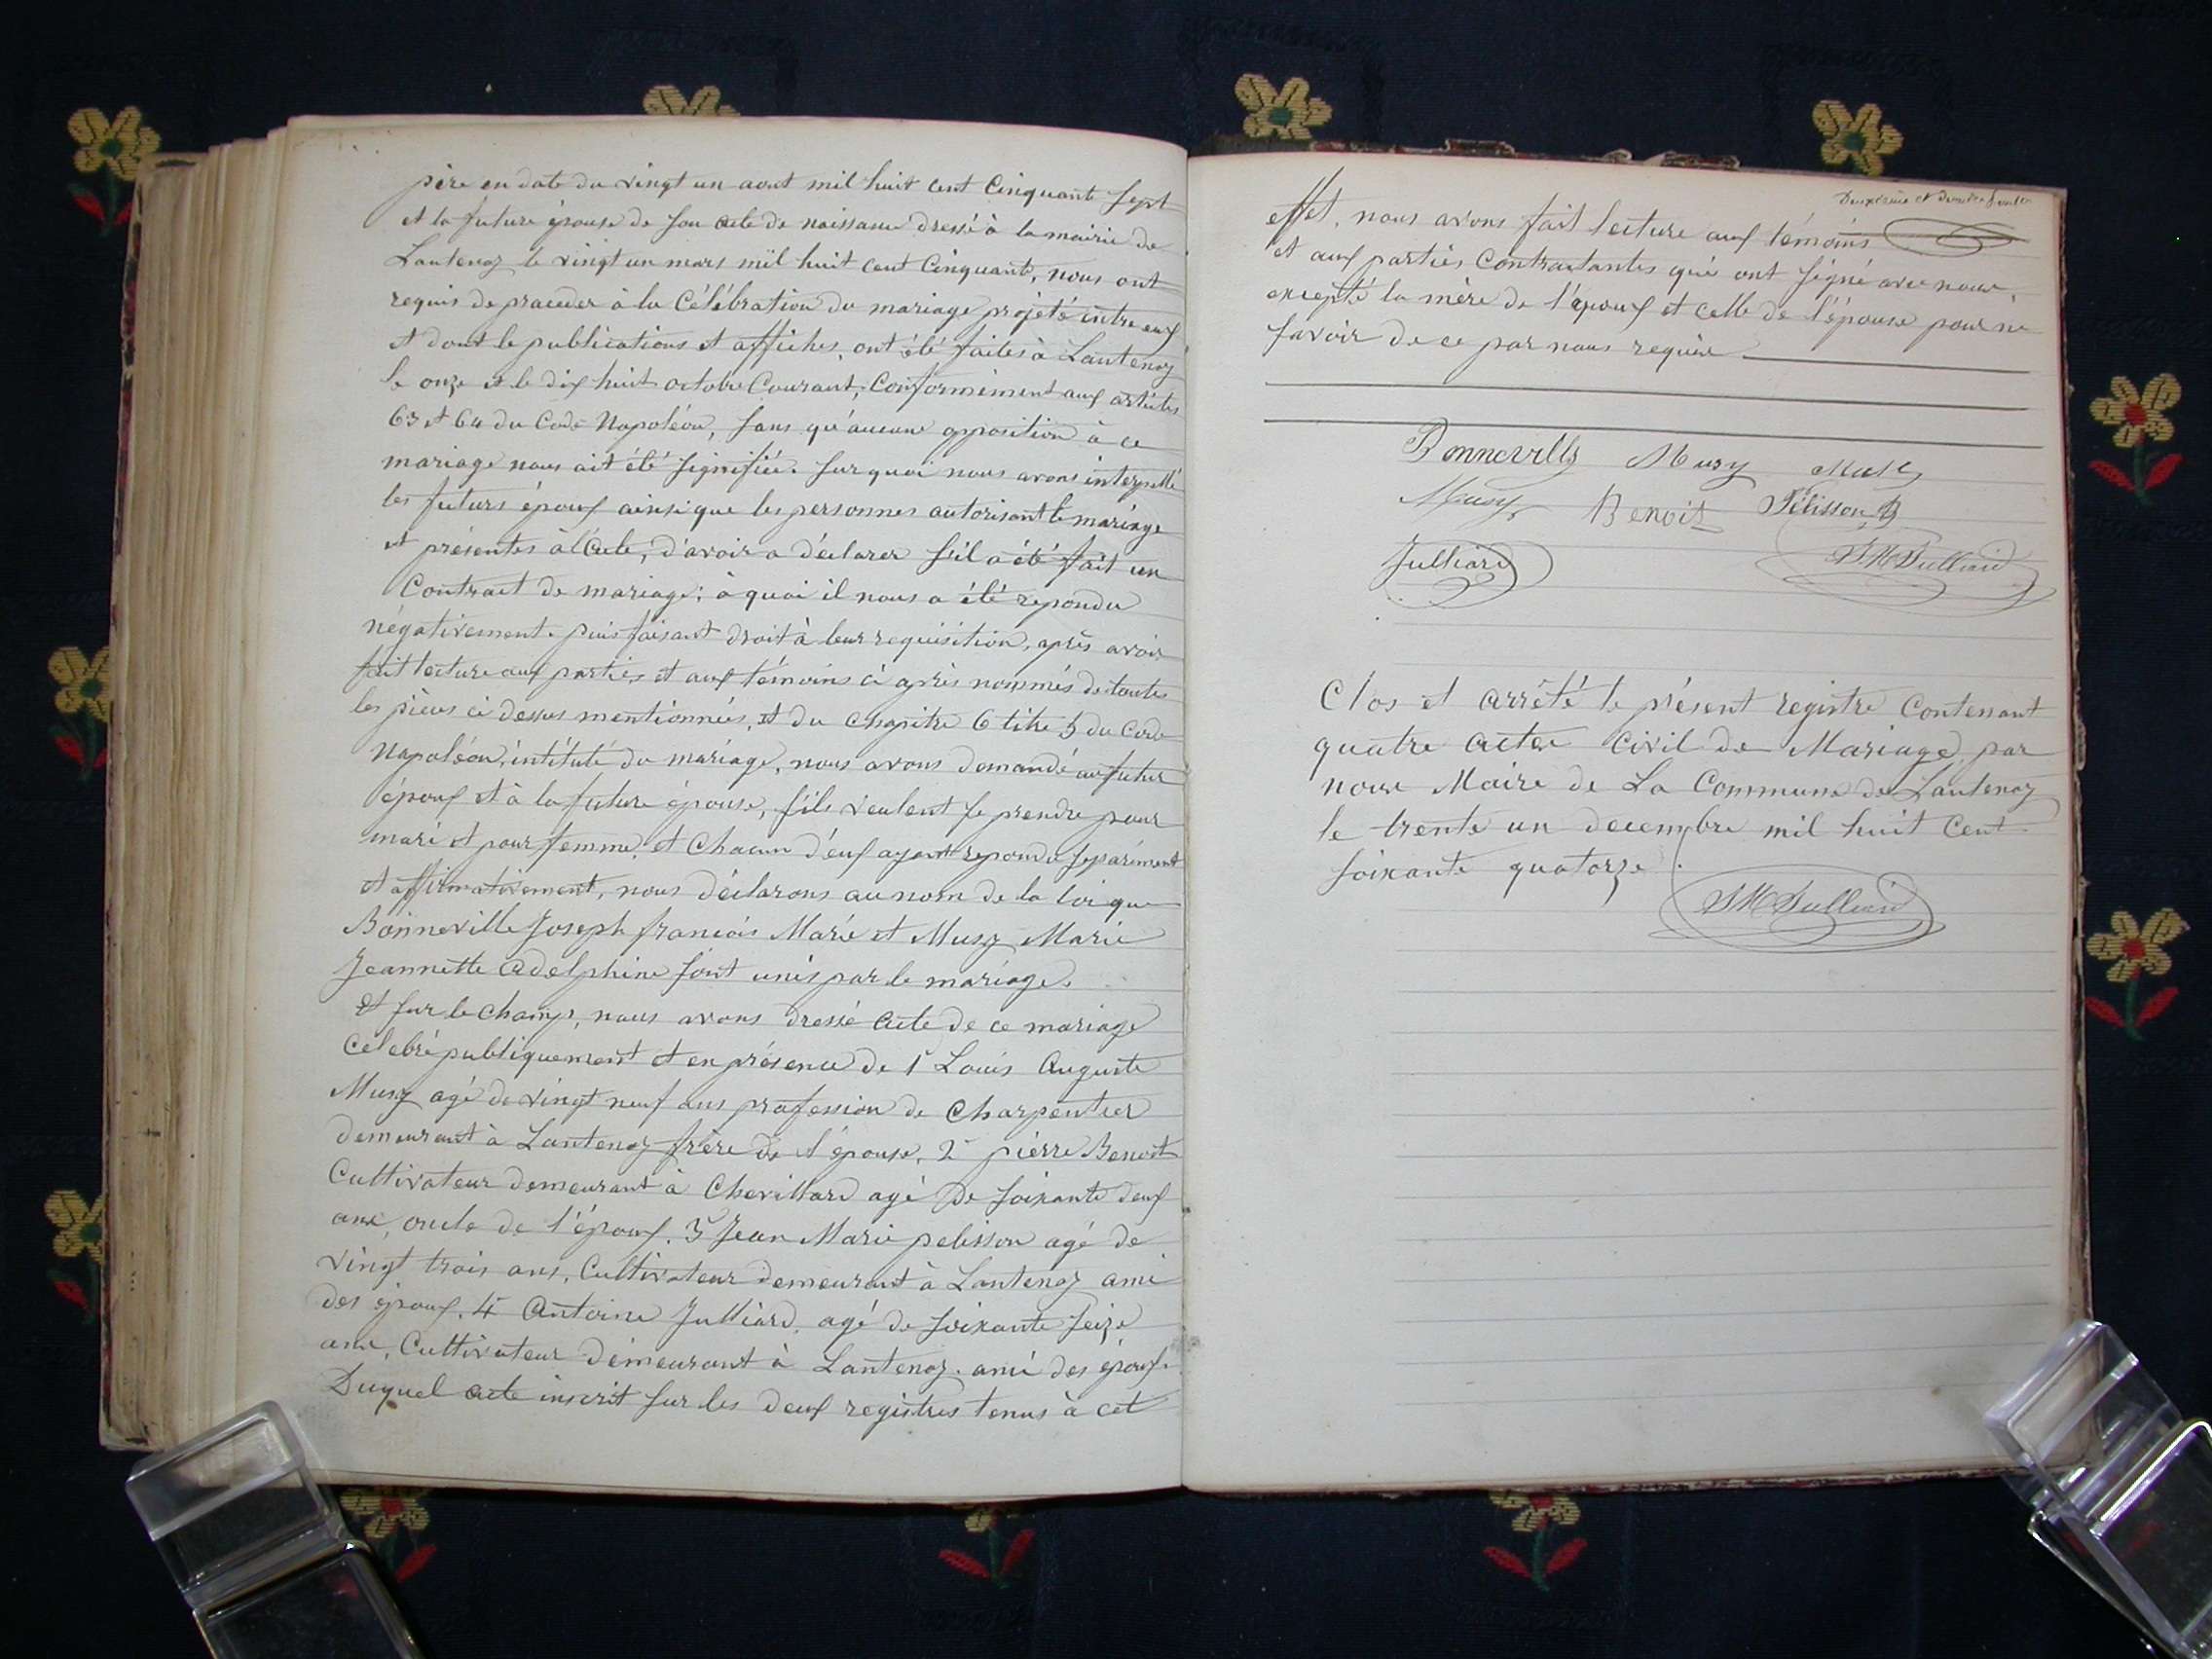 père en date du vingt un aout mil huit cent Cinquante sept
et la future épouse de son acte de naissance dressé à la mairie de
Lantenay le vingt un mars mil huit cent Cinquante, nous ont
requis de proceder à la Célébration du mariage projeté entre eux
et dont le publications et affiches, ont été faites à Lantenay
le onze et le dix huit octobre Courant, Conformément aux articles
63 et 64 du Code Napoléon, sans qu'aucune opposition à ce
mariage nous ait été signifiée. Sur quoi nous avons interpellé
les futurs époux ainsi que les personnes autorisant le mariage
et présentes à l'acte, d'avoir a déclarer s'il a été fait un
Contrat de mariage; à quoi il nous a été repondu
négativement. puis faisant droit à leur requisition, après avoir
fait lecture aux parties et aux témoins ci après nommés de toutes
les pièces ci dessus mentionnées, et du chapitre 6 titre 5 du Code
Napoléon, intitulé du mariage, nous avons demandé au futur
époux et à la future épouse, s'ils veulent se prendre pour
mari et pour femme, et Chacun d'eux ayant repondu séparément
et affirmativement, nous déclarons au nom de la loi que
Bonneville Joseph françois Marie et Musy Marie
Jeannette Adelphine sont unis par le mariage.
Et sur le champ, nous avons dressé acte de ce mariage
Célebré publiquement et en présence de 1° Louis Auguste
Musy agé de vingt neuf ans profession de Charpentier
demeurant à Lantenay frère de l'épouse, 2° pierre Benoit
Cultivateur demeurant à Chevillard agé de soixante deux
ans, oncle de l'époux. 3° Jean Marie pelisson agé de
vingt trois ans, Cultivateur demeurant à Lantenay ami
des époux. 4° Antoine Julliard, agé de soixante seize
ans, Cultivateur demeurant à Lantenay. ami des époux.
Duquel acte inscrit sur les deux registres tenus à cet
Deuxième et dernier
effet, nous avons fait lecture aux témoins
et aux parties Contractantes qui ont signé avec nous,
excepté la mère de l'époux et celle de l'épouse pour ne
savoir de ce par nous requise
Bonneville Musy Musy
Musy Benoit Pélisson
Julliard JM Julliard
Clos et arrêté le présent registre Contenant
quatre actes Civil de Mariage par
nous Maire de La Commune de Lantenay
le trente un decembre mil huit Cent
soixante quatorze.
JM Julliard